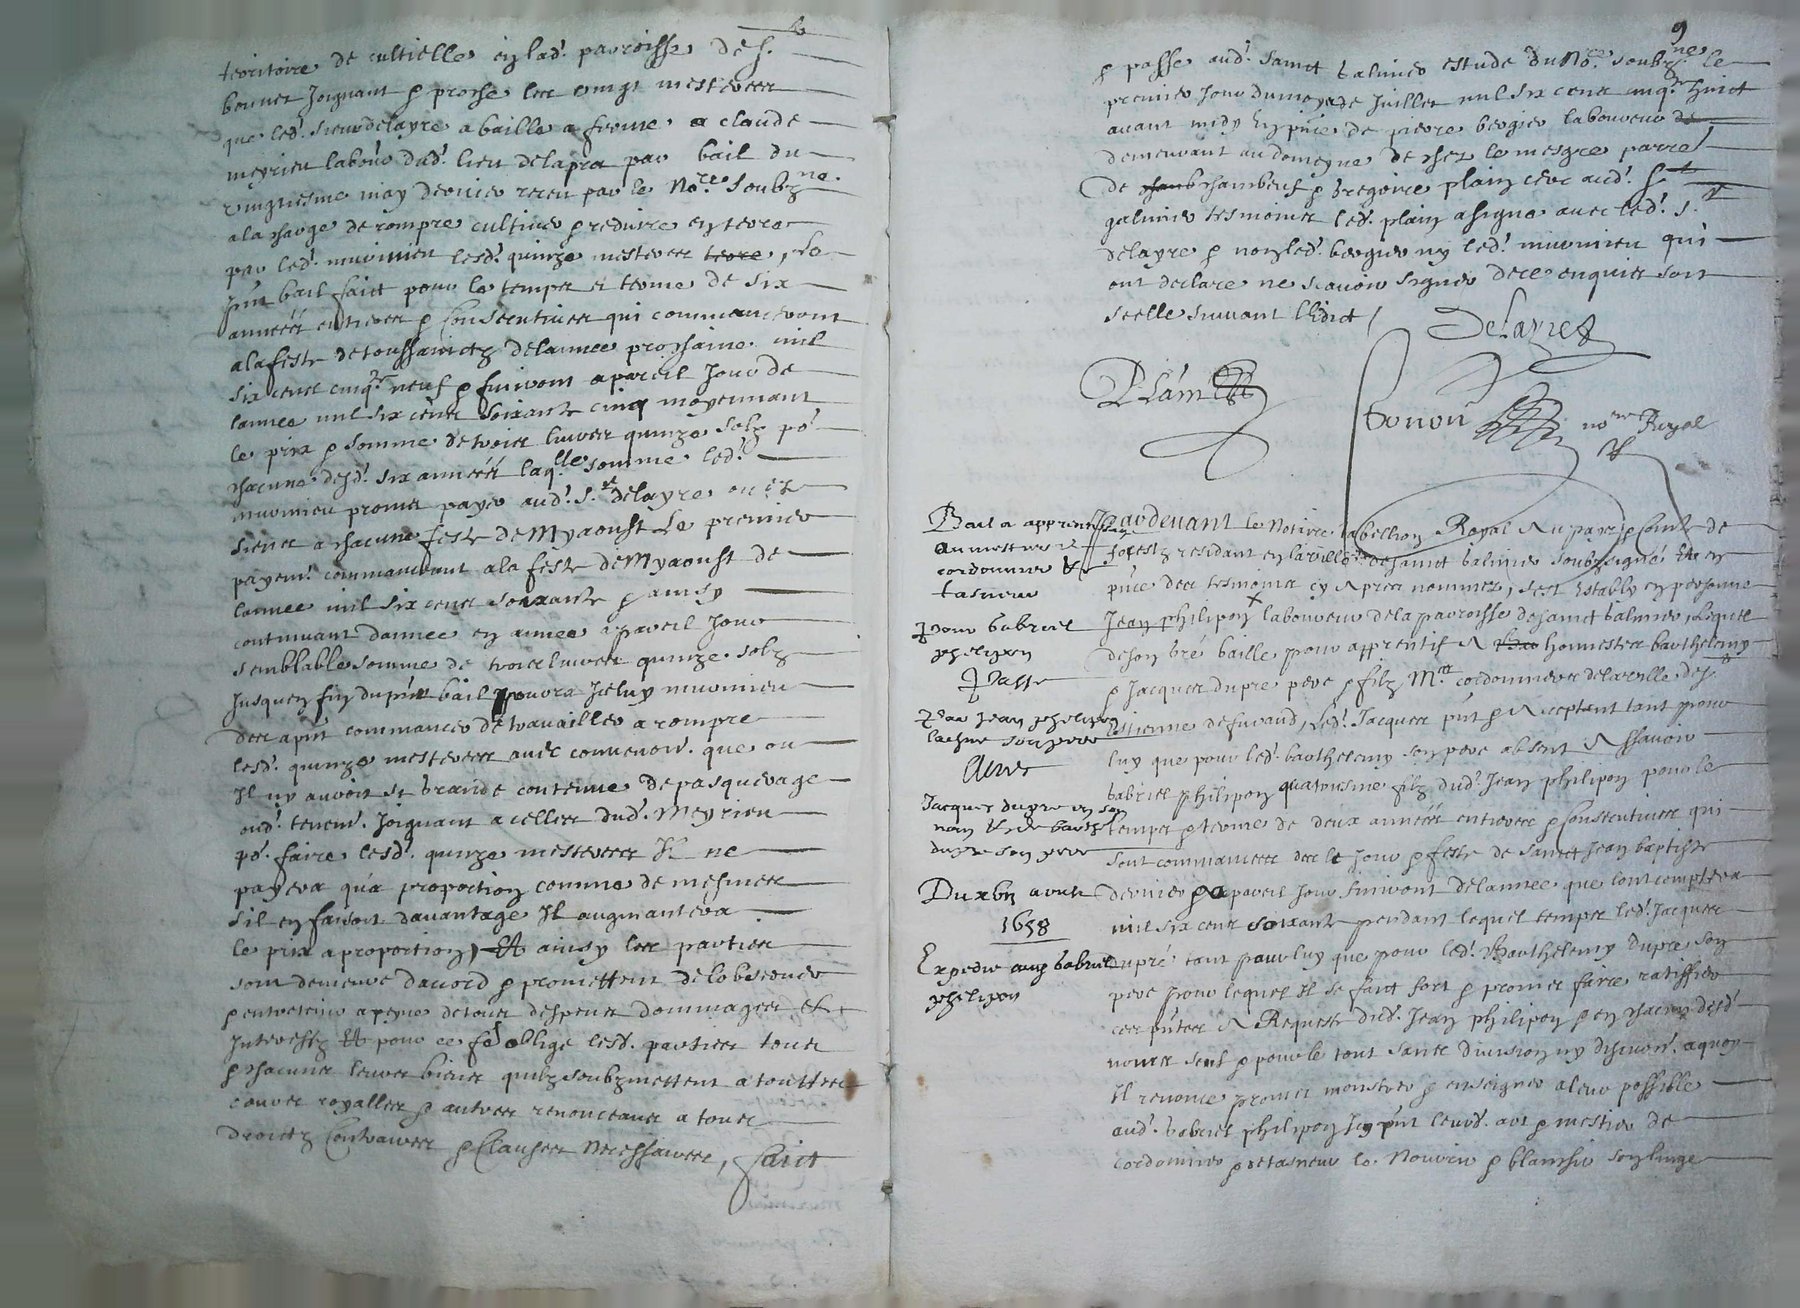 territoire de cultielle en lad.t parroisse de S.t
bonnet Joignant & proche les vingt mesteres
que led.t sieur delayre a baille a ferme a claude
meyrieu labour dud.t lieu delapra par bail du
vingtiesme may dernier receu par le No.re soubz.ne
a la charge de rompre cultiver & reduire en terre
par led.t murinieu lesd.t quinze mesteres terre, le
p.nt bail faict pour le temps et terme de six
années entieres & consecutives qui commanceront
a la feste de toussainctz de lannee prochaine mil
six cens cinq.te neuf & finiront a pareil Jour de
lannee mil six cens soixante cinq moyennant
le prix & somme de trois livres quinze solz po.r
chacune desd.t six années laq.lle somme led.t
murinieu promet payer aud.t s.r delayre ou es
siens a chacune feste de Myaoust le premier
payem.t commancant a la feste de Myaoust de
lannee mil six cens soixante & ainsy
continuant dannee en annee a pareil Jour
semblable somme de trois livres quinze solz
Jusquen fin du p.nt bail pourra Jceluy murinieu
des a p.nt commancer de travailler a rompre
lesd.t quinze mesteres avec convenon. que ou
Il ny auroit si grande contenue de pasquerage
aud.t tenem.t Joignant a celles dud.t Meyrieu
po.r faire lesd.t quinze mesteres Il ne
payera qua proportion comme de mesmes
sil en faisoit davantage Il augmantera
le prix a proportion, Et ainsy les parties
sont demeure daccord & promettent de lobserver
& entretenir a peyne de tous despens dommages et
Interestz Et pour ce fe.t oblige lesd.t parties tous
& chacuns leurs biens quilz soubzmettent a touttes
cours royalles & autres renonceans a tous
droictz Contraires & Clauses necessaires, faict
9
& passe aud.t sainct galmier estude du No.re soubz.ne le
premier jour du moys de Juillet mil six cens cinq.te huict
avant midy en p.nce de pierre bergier laboureur de
demeurant au domeyne de chez le mesgre parre
de chambeuf & gregoire plain clerc aud.t S.t
galmier tesmoins led.t plain a signe avec led.t s.r
delayre & non led.t bergier ny led.t murinieu qui
ont declare ne scavoir signer de ce enquis soit
scelle suivant lEdict /
Delayre
Plain
bonon
no.re Royal
Bail a apprentissage
au mestier de
cordonnier &
tasneur
pour gabriel
phelipon
Passe
par jean phelipon
son pere
Avec
Jacques dupre en son
nom & de barth.
dupre son pere
Du xbij avril
1658
Expedie aux gabriel
phelipon
Pardevant le Notaire tabellion Royal au pays & Conte de
forestz residant en la ville de sainct galmier soubzsigné en
p.nce des tesmoins cy apres nommez, sest Establi en personne
Jean philipon laboureur de la parroisse de sainct galmier, Lequel
de son gré baille pour apprentif a honnestes barthelemy
& Jacques dupre pere & filz M.es cordonniers de la ville de S.t
estienne de furand, led.t Jacques p.nt & acceptant tant pour
luy que pour led.t barthelemy son pere absent Assavoir
gabriel philipon filz dud.t Jean philipon pour le
temps & terme de deux années entieres & consecutives qui
sont commancees des le Jour & feste de sainct Jean baptiste
dernier & a pareil Jour finiront de lannee que lont comptera
mil six cens soixante pendant lequel temps led.t Jacques
dupré tant pour luy que pour led.t Barthelemy dupre son
pere pour lequel Il se faict fort & promet faire ratiffier
ces p.ntes a Requeste dud.t Jean philipon & en chacun desd.t
noms seul & pour le tout sans division ny discution. a quoy
Il renonce promet monstrer & enseigner a leur possible
aud.t gabriel philipon Icy p.nt leurd.t art & mestier de
cordonnier & de tasneur le nourir & blanchir son linge